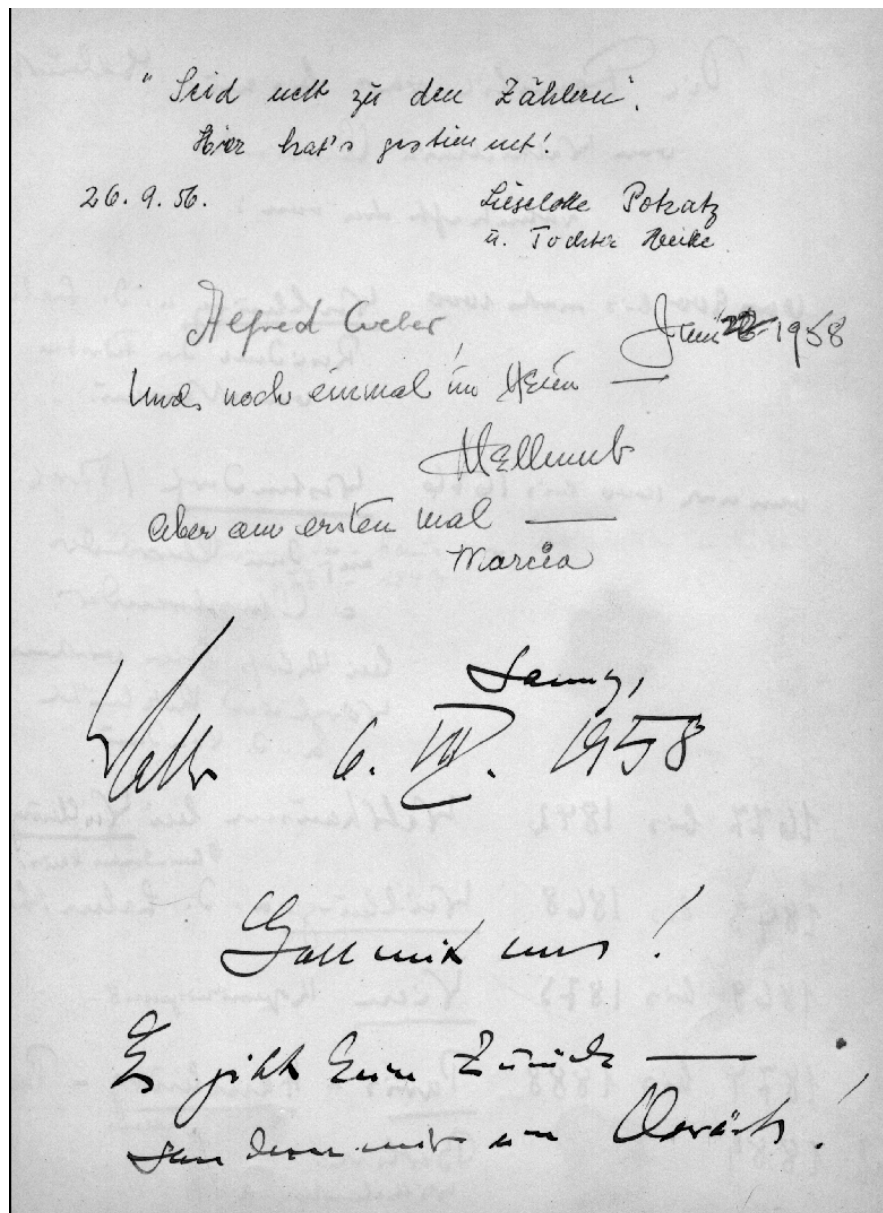 "Seid nett zu den Zählern".
Hier hat's gestimmt!
26. 9. 56. Lieselotte Pokatz
u. Tochter Heike
Alfred Weber, Juni 1958
Und noch einmal im Heim —
Hellmut
aber am ersten mal —
Marcia
6. VII. 1958
Gott mit uns!
Es gibt kein Zurück —
sondern nur ein Vorwärts!